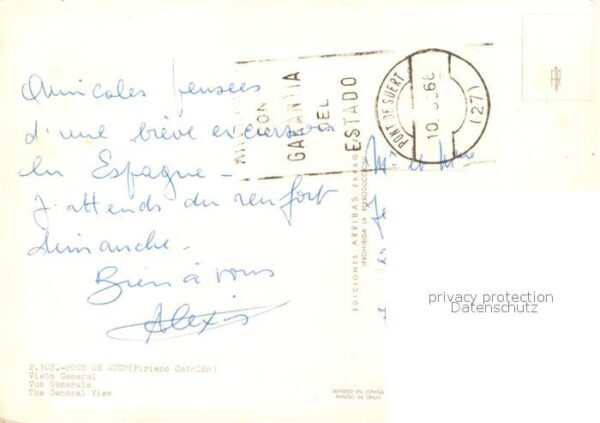 Amicales pensées
d'une brève excursion
en Espagne -
J'attends du renfort
dimanche -
Bien à vous
Alexis
CON
GARANTIA
DEL
ESTADO
PONT DE SUERT
(27)
EDICIONES ARRIBAS ZARAGOZA
(PROHIBIDA LA REPRODUCCION)
Mr et Mme
privacy protection
Datenschutz
2.102.-PONT DE SUERT(Pirineo Catalán)
Vista General
Vue Generale
The General View
IMPRESO EN ESPAÑA
PRINTED IN SPAIN